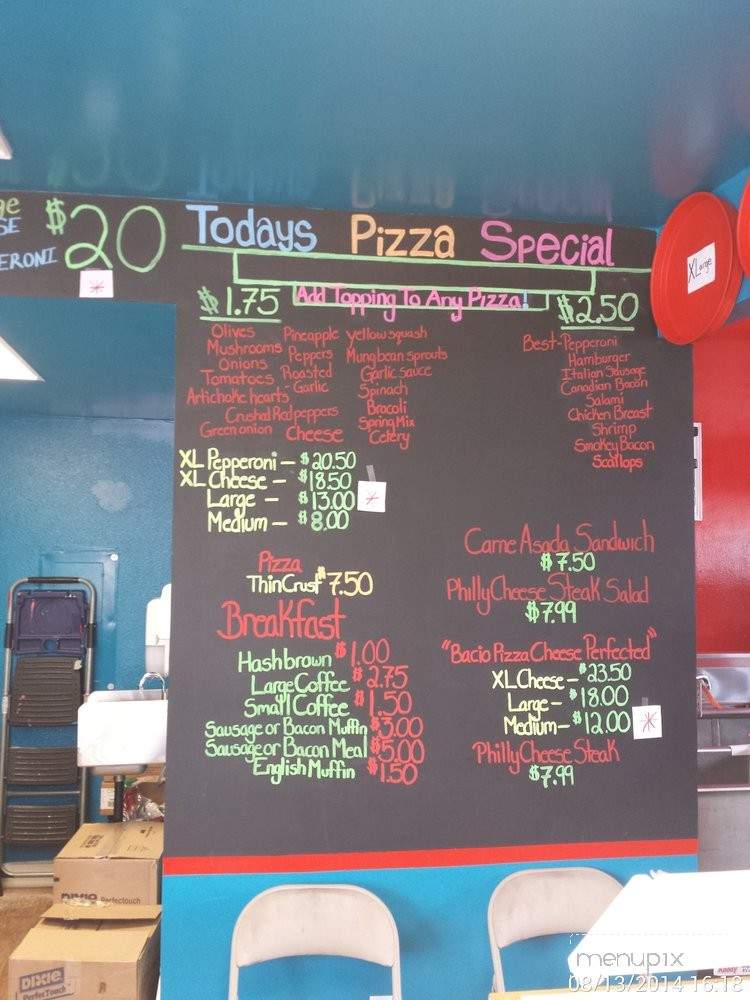 $20
ERONI
Todays Pizza Special
XLarge
$1.75 Add Topping To Any Pizza! $2.50
Olives Pineapple yellow squash
Mushrooms Peppers Mung bean sprouts
Onions Roasted Garlic sauce
Tomatoes - Garlic Spinach
Artichoke hearts Brocoli
Crushed Red peppers Spring Mix
Green onion Cheese Celery
Best-Pepperoni
Hamburger
Italian Sausage
Canadian Bacon
Salami
Chicken Breast
Shrimp
Smokey Bacon
Scallops
XL Pepperoni - $20.50
XL Cheese - $18.50
Large - $13.00
Medium - $8.00
Pizza
Thin Crust $7.50
Breakfast
Hashbrown $1.00
Large Coffee $2.75
Small Coffee $1.50
Sausage or Bacon Muffin $3.00
Sausage or Bacon Meal $5.00
English Muffin $1.50
Carne Asada Sandwich
$7.50
Philly Cheese Steak Salad
$7.99
"Bacio Pizza Cheese Perfected"
XL Cheese - $23.50
Large - $18.00
Medium - $12.00
Philly Cheese Steak
$7.99
DIXIE Perfectouch
DIXIE
PerfecTouch
menupix
08/13/2014 16:18